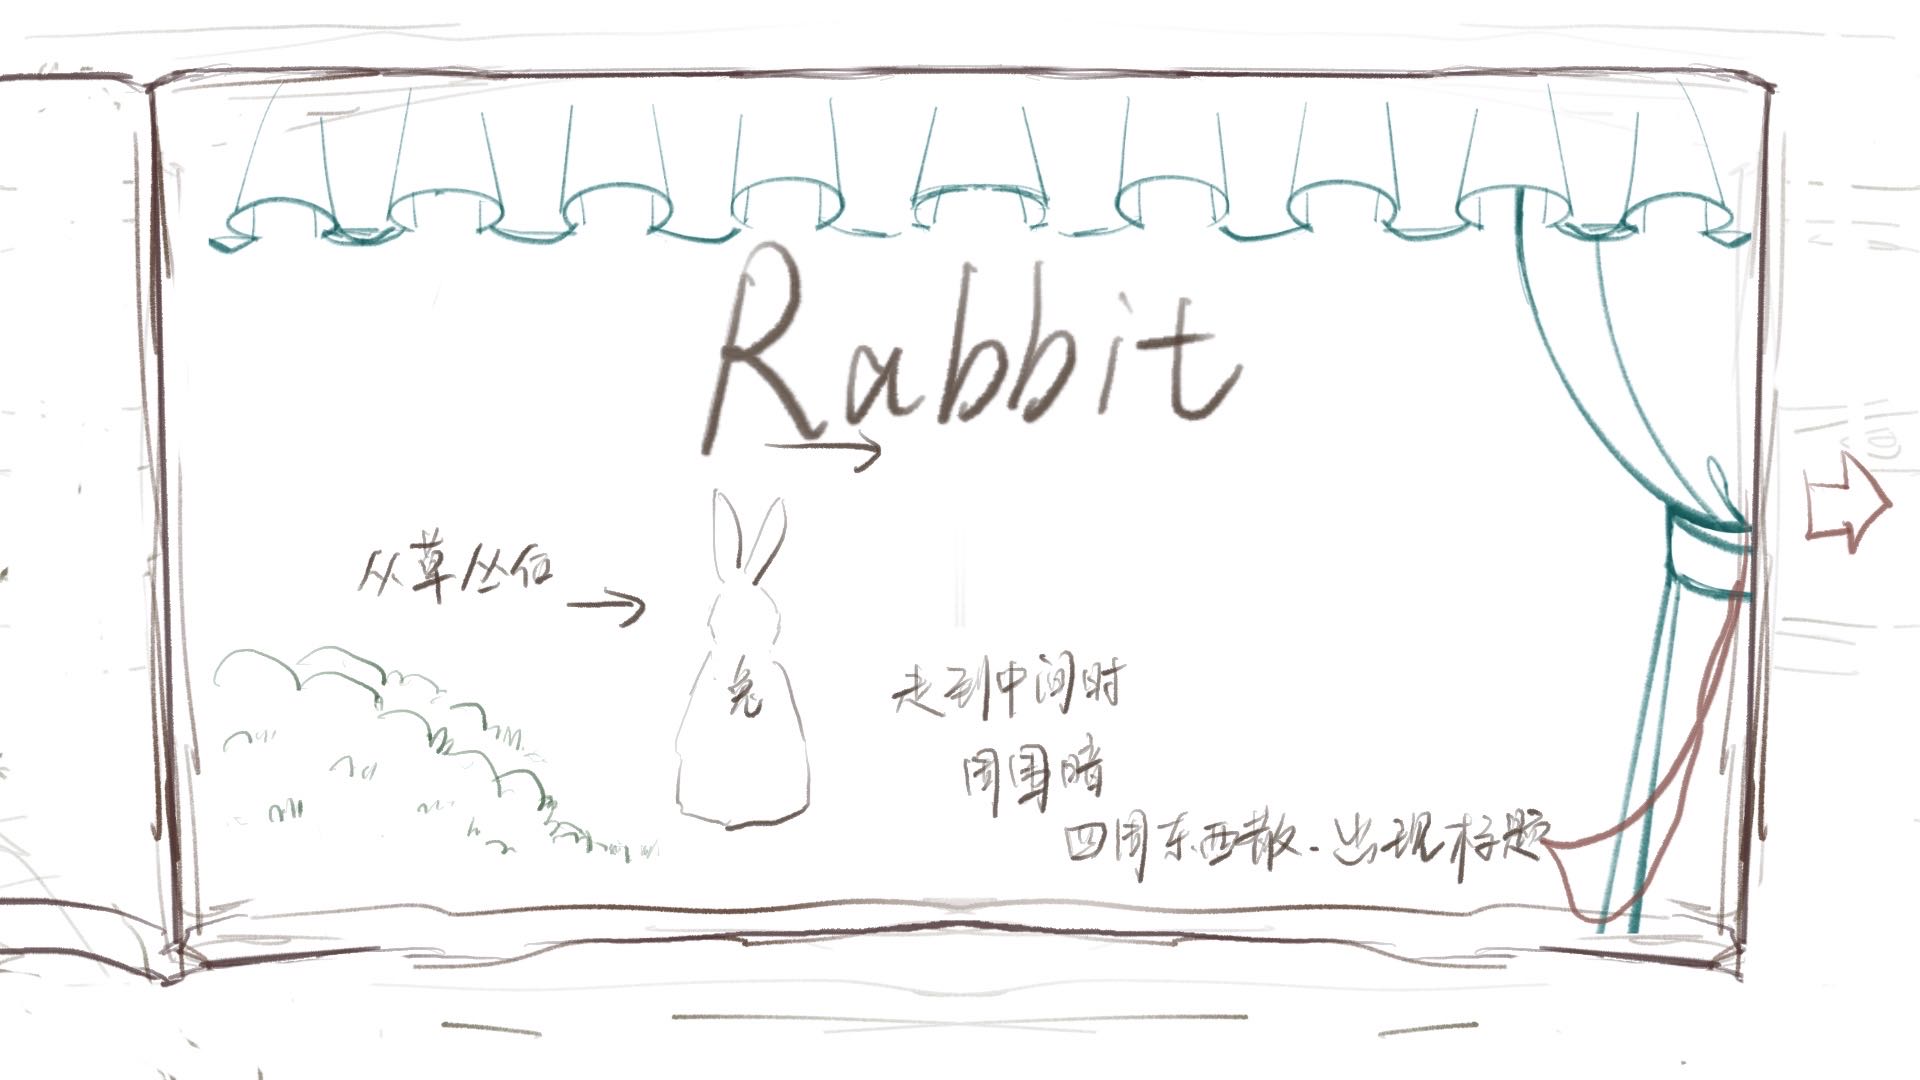 Rabbit
从草丛后
兔
走到中间时
周围暗
四周东西散.出现标题